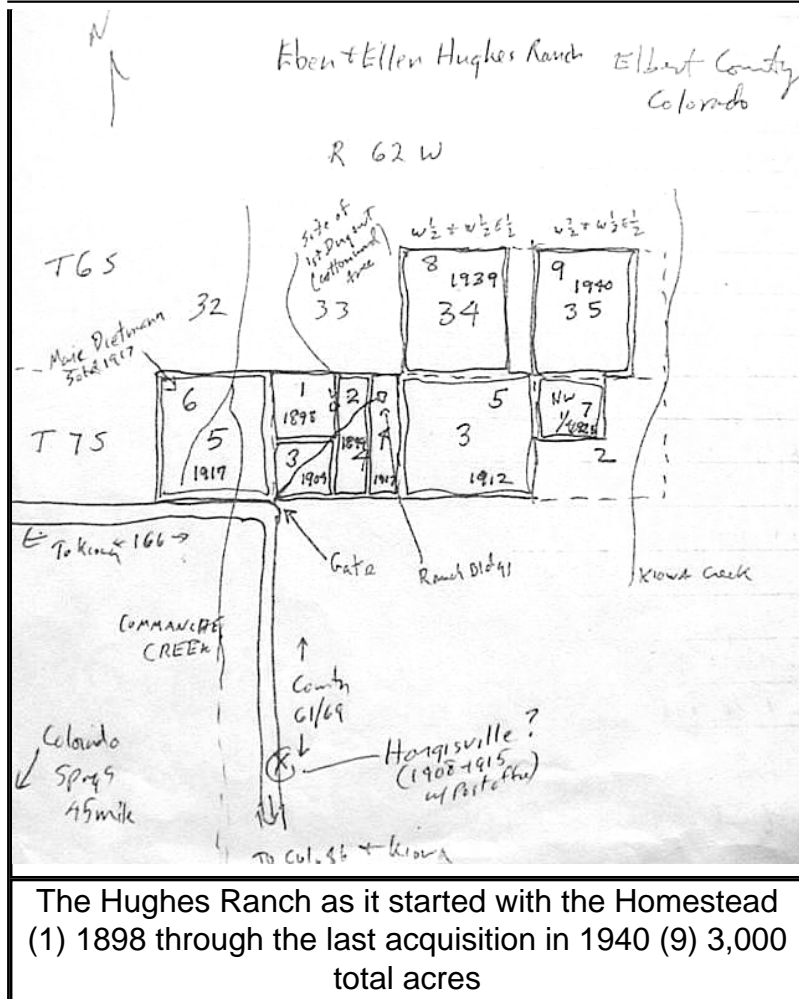 N
Eben + Ellen Hughes Ranch
Elbert County
Colorado
R 62 W
Site of
1st Dugout
(cottonwood
tree
W½ + W½E½
W½ + W½E½
T6S
32
33
8
1939
34
9
1940
35
Marie Dietmann
Sold 1917
T 7S
6
5
1917
1
1898
2
3
4
5
3
1912
NW
1/4
7
2
To Kiowa
166
Gate
Ranch Bldgs
Kiowa Creek
COMMANCHE
CREEK
County
61/69
Colorado
Spngs
45mile
Hargisville ?
(1908 + 1915
w/ Postoffice)
To Col. 86 + Kiowa
The Hughes Ranch as it started with the Homestead
(1) 1898 through the last acquisition in 1940 (9) 3,000
total acres